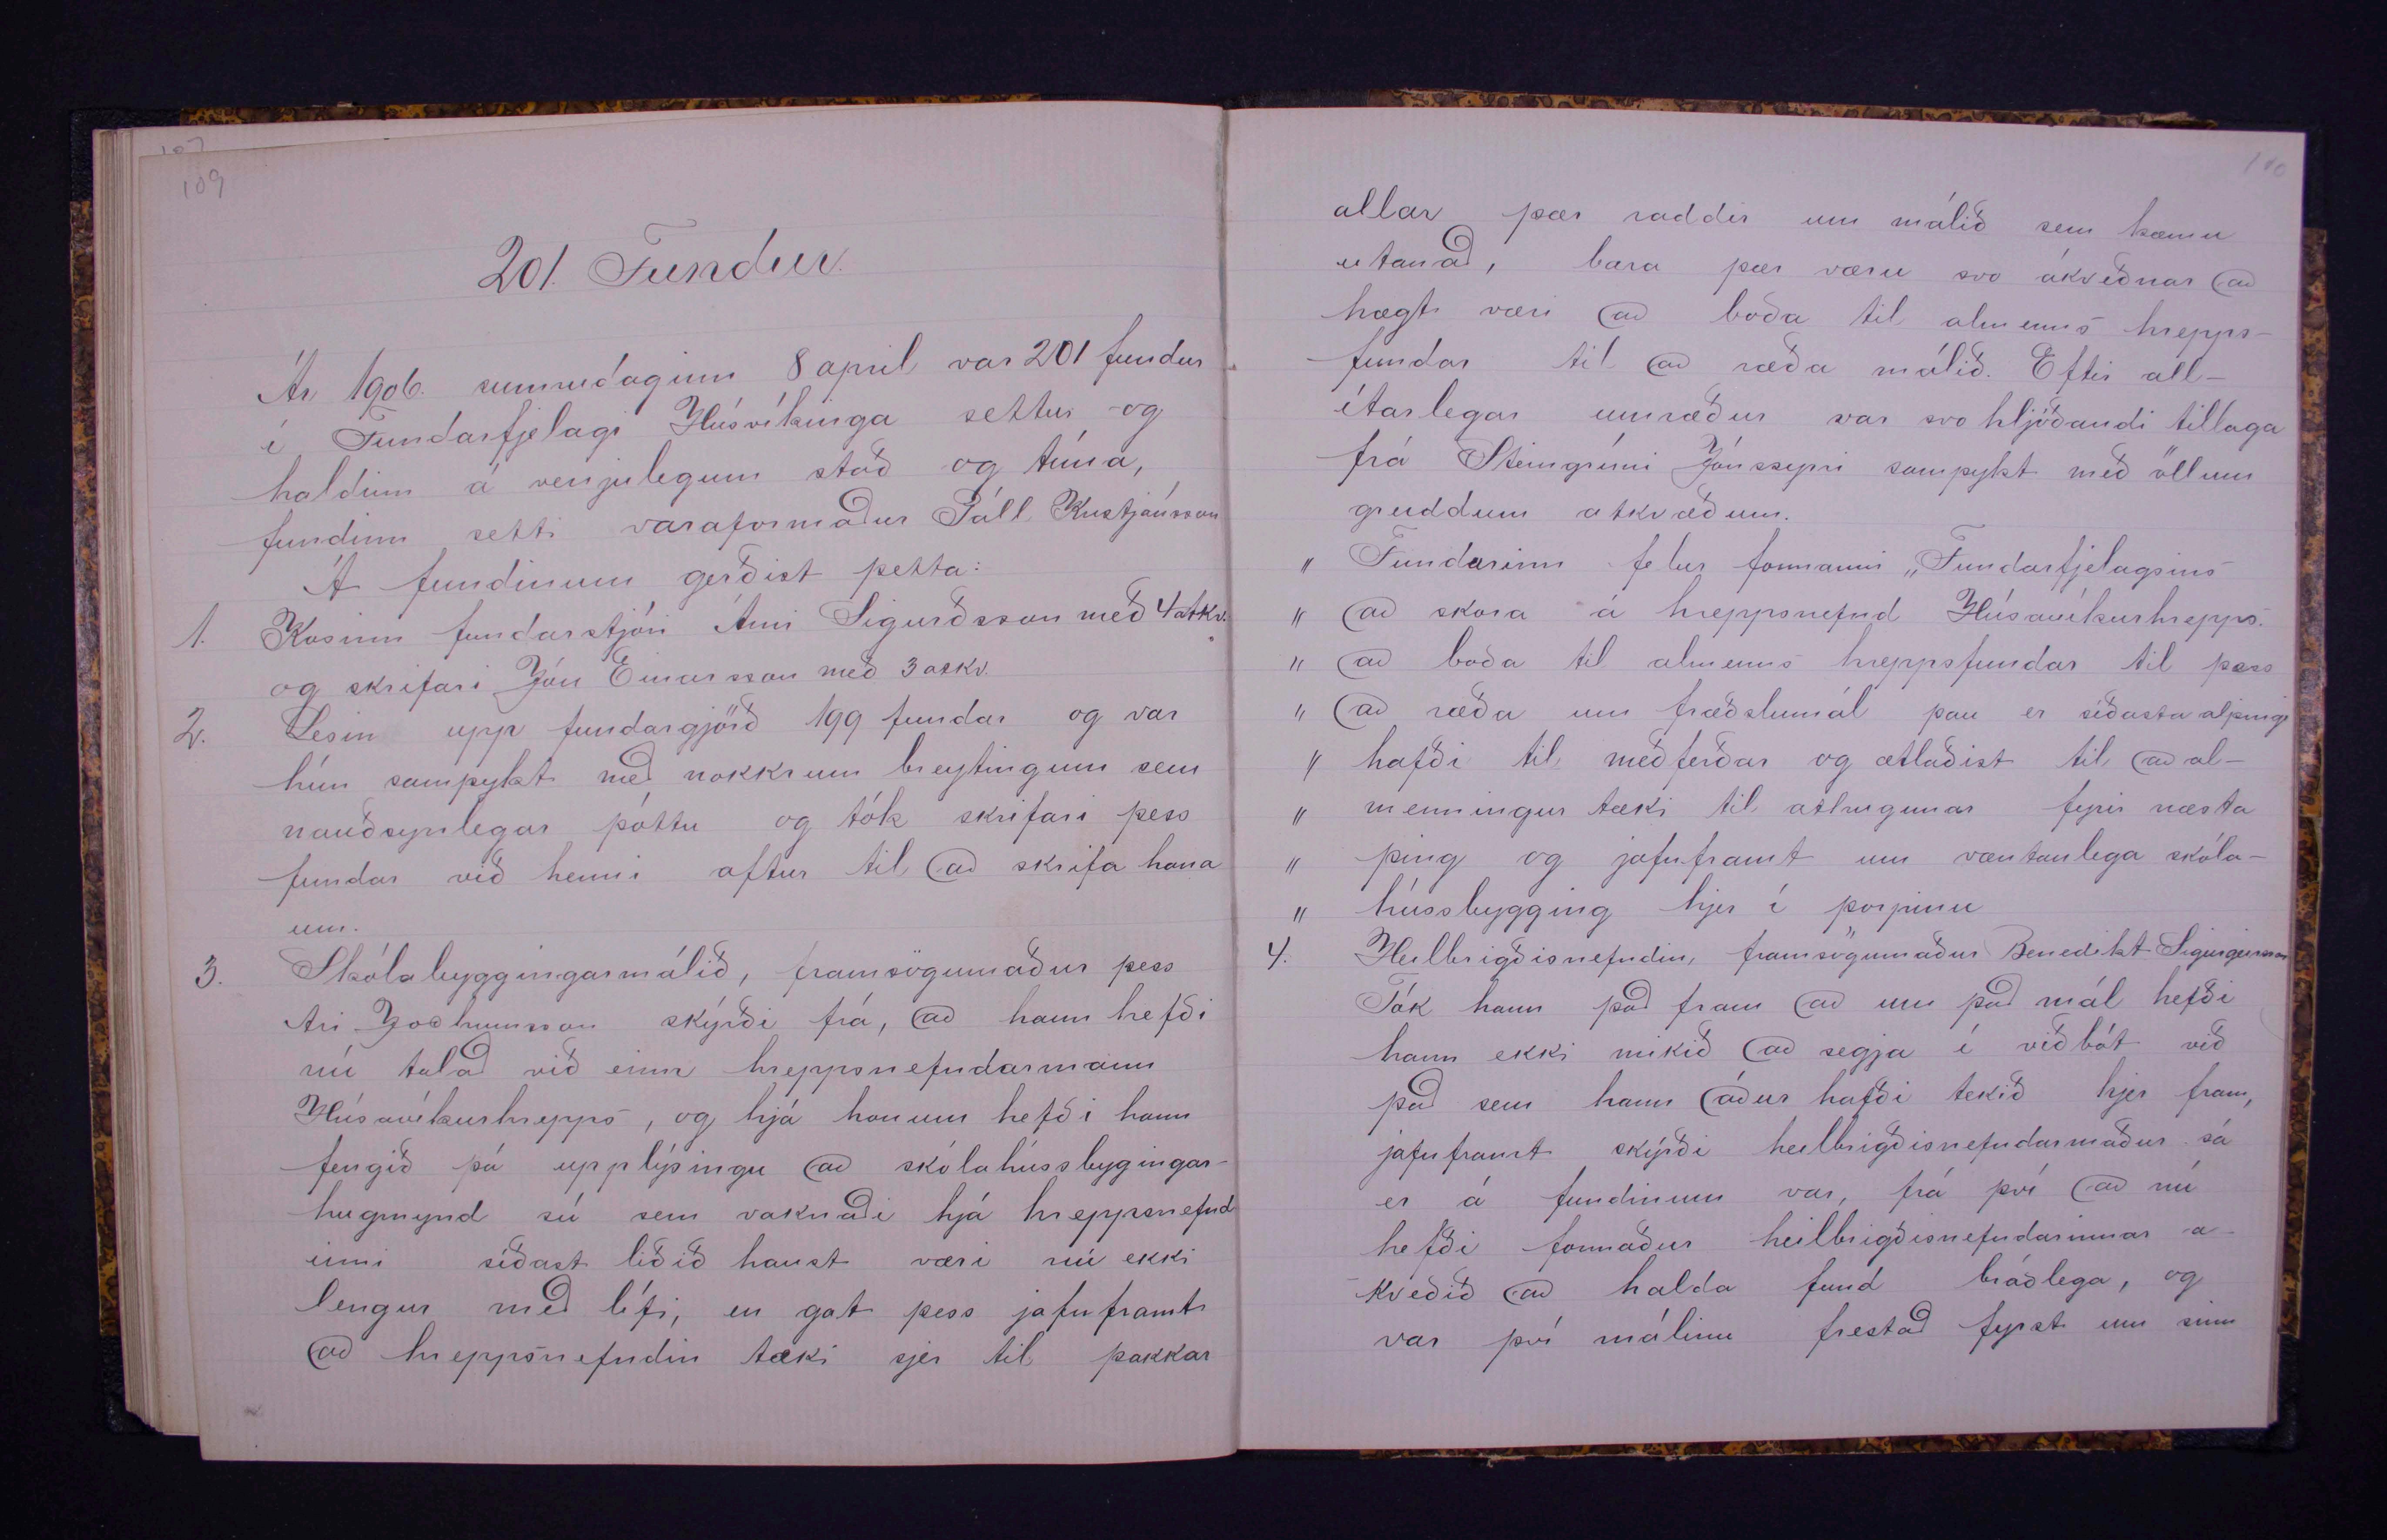 107
109
201. Fundur.
Ár 1906. sunnudaginn 8 april var 201 fundur
í Fundarfjelagi Húsvíkinga settur og
haldinn á venjulegum stað og tíma,
fundinn setti varaformaður Páll Kristjánsson
Á fundinum gerðist þetta:
1. Kosinn fundarstjóri Árni Sigurðsson með 4 atkv.
og skrifari Jón Einarsson með 3 atkv.
2. Lesin upp fundargjörð 199 fundar og var
hún samþykt með nokkrum breytingum sem
nauðsynlegar þóttu og tók skrifari þess
fundar við henni aftur til að skrifa hana
um.
3. Skólabyggingarmálið, framsögumaður þess
Ari Jochumsson skýrði frá, að hann hefði
nú talað við einn hreppsnefndarmann
Húsavíkurhrepps, og hjá honum hefði hann
fengið þá upplýsingu að skólahússbygingar-
hugmynd sú sem vaknaði hjá hreppsnefnd
inni síðast liðið haust væri nú ekki
lengur með lífi, en gat þess jafnframt
að hreppsnefndin tæki sjer til þakkar
110
allar þær raddir um málið sem kæmu
utanað, bara þær væru svo ákveðnar að
hægt væri að boða til almenns hrepps-
fundar til að ræða málið. Eftir all-
ítarlegar umræður var svo hljóðandi tillaga
frá Steingrími Jónssyni samþykt með öllum
greiddum atkvæðum.
" Fundurinn felur formanni „Fundarfjelagsins
" að skora á hreppsnefnd Húsavíkurhrepps.
" að boða til almenns hreppsfundar til þess
" að ræða um fræðslumál þau er síðasta alþingi
" hafði til meðferðar og ætlaðist til að al-
" menningur tæki til athugunar fyrir næsta
" þing og jafnframt um væntanlega skóla-
" hússbygging hjer í þorpinu
4. Heilbrigðisnefndin, framsögumaður Benedikt Sigurgeirsson
Tók hann það fram að um það mál hefði
hann ekki mikið að segja í viðbót við
það sem hann áður hafði tekið hjer fram,
jafnframt skýrði heilbrigðisnefndarmaður sá
er á fundinum var, frá því að nú
hefði formaður heilbrigðisnefndarinnar á-
kveðið að halda fund bráðlega, og
var því málinu frestað fyrst um sinn